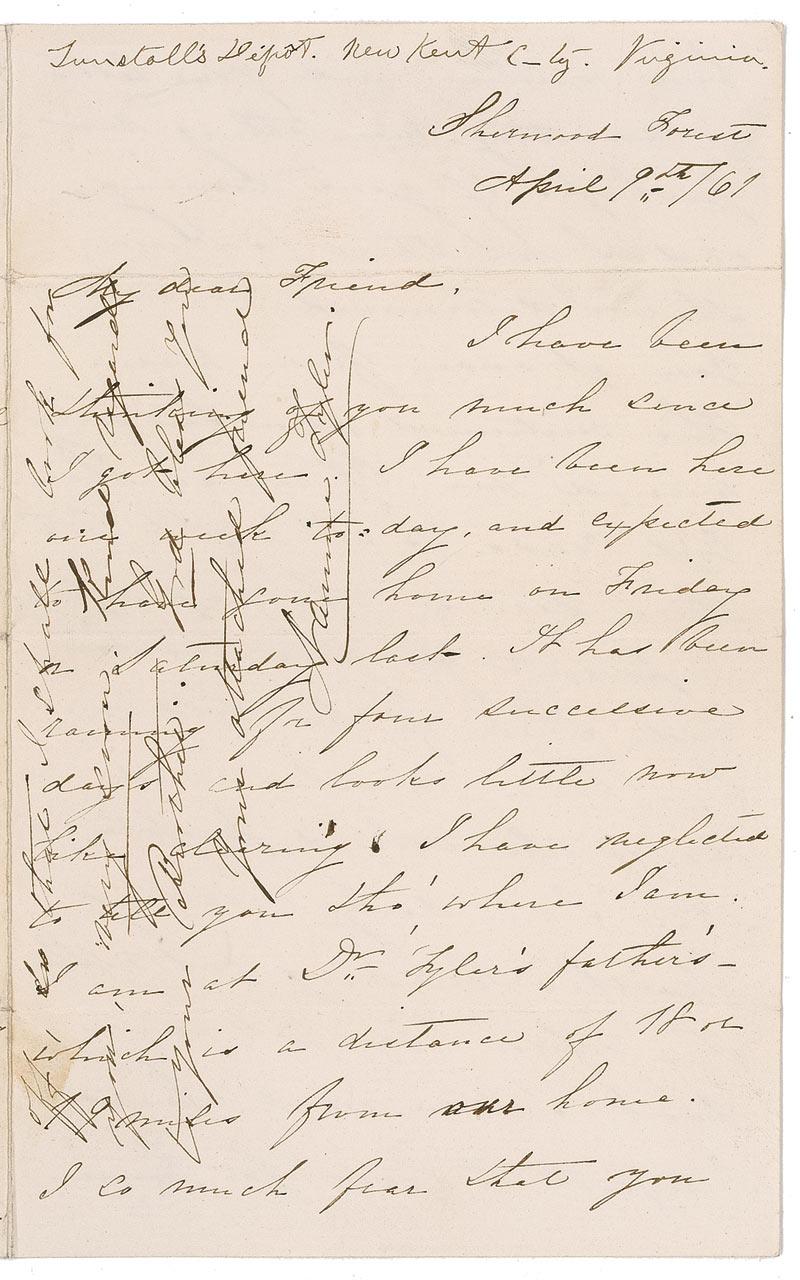 Tunstall's Dépôt. New Kent C-ty. Virginia.
Sherwood Forest
April 9th/61
My dear Friend,
I have been
thinking of you much since
I got here. I have been here
one week to-day, and expected
to have gone home on Friday
or Saturday last. It has been
raining for four successive
days and looks little now
like clearing. I have neglected
to tell you tho' where I am.
I am at Dr Tyler's father's-
which is a distance of 18 or
19 miles from our home.
I so much fear that you
do that I shall look for
very soon. Kind regards
your Brother. God bless you
your attached friend
Nannie Tyler.